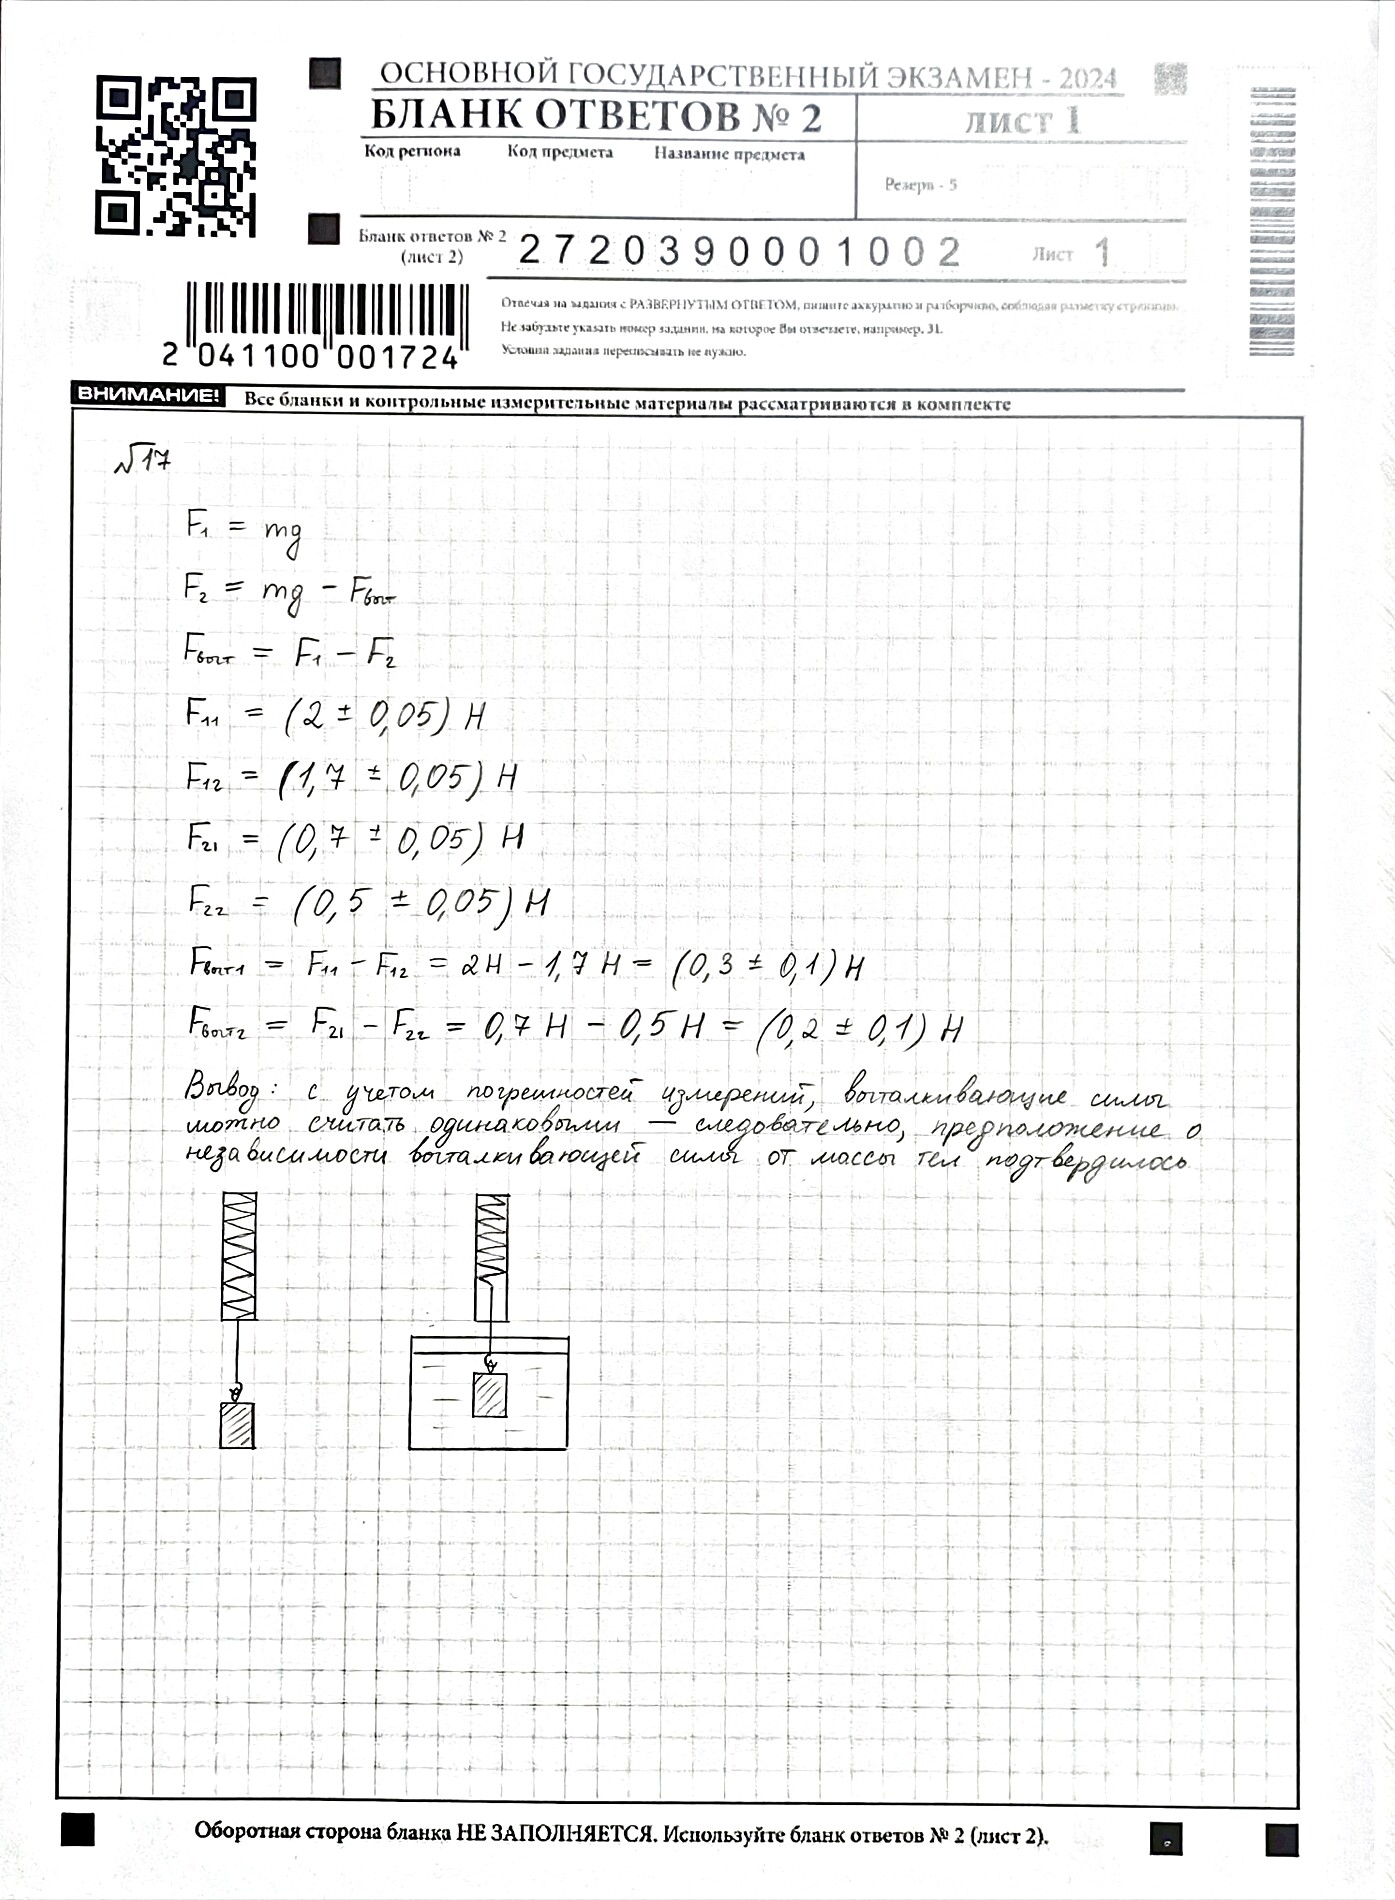 ОСНОВНОЙ ГОСУДАРСТВЕННЫЙ ЭКЗАМЕН - 2024
БЛАНК ОТВЕТОВ № 2
ЛИСТ 1
Код региона Код предмета Название предмета
Резерв - 5
Бланк ответов № 2
(лист 2)
2720390001002
Лист 1
Отвечая на задания с РАЗВЕРНУТЫМ ОТВЕТОМ, пишите аккуратно и разборчиво, соблюдая разметку страницы.
Не забудьте указать номер задания, на которое Вы отвечаете, например, 31.
Условия задания переписывать не нужно.
2 041100 001724
ВНИМАНИЕ! Все бланки и контрольные измерительные материалы рассматриваются в комплекте
№17
F₁ = mg
F₂ = mg - Fвыт
Fвыт = F₁ - F₂
F₁₁ = (2 ± 0,05) Н
F₁₂ = (1,7 ± 0,05) Н
F₂₁ = (0,7 ± 0,05) Н
F₂₂ = (0,5 ± 0,05) Н
Fвыт1 = F₁₁ - F₁₂ = 2Н - 1,7 Н = (0,3 ± 0,1) Н
Fвыт2 = F₂₁ - F₂₂ = 0,7 Н - 0,5 Н = (0,2 ± 0,1) Н
Вывод: с учетом погрешностей измерений, выталкивающие силы
можно считать одинаковыми — следовательно, предположение о
независимости выталкивающей силы от массы тел подтвердилось
Оборотная сторона бланка НЕ ЗАПОЛНЯЕТСЯ. Используйте бланк ответов № 2 (лист 2).